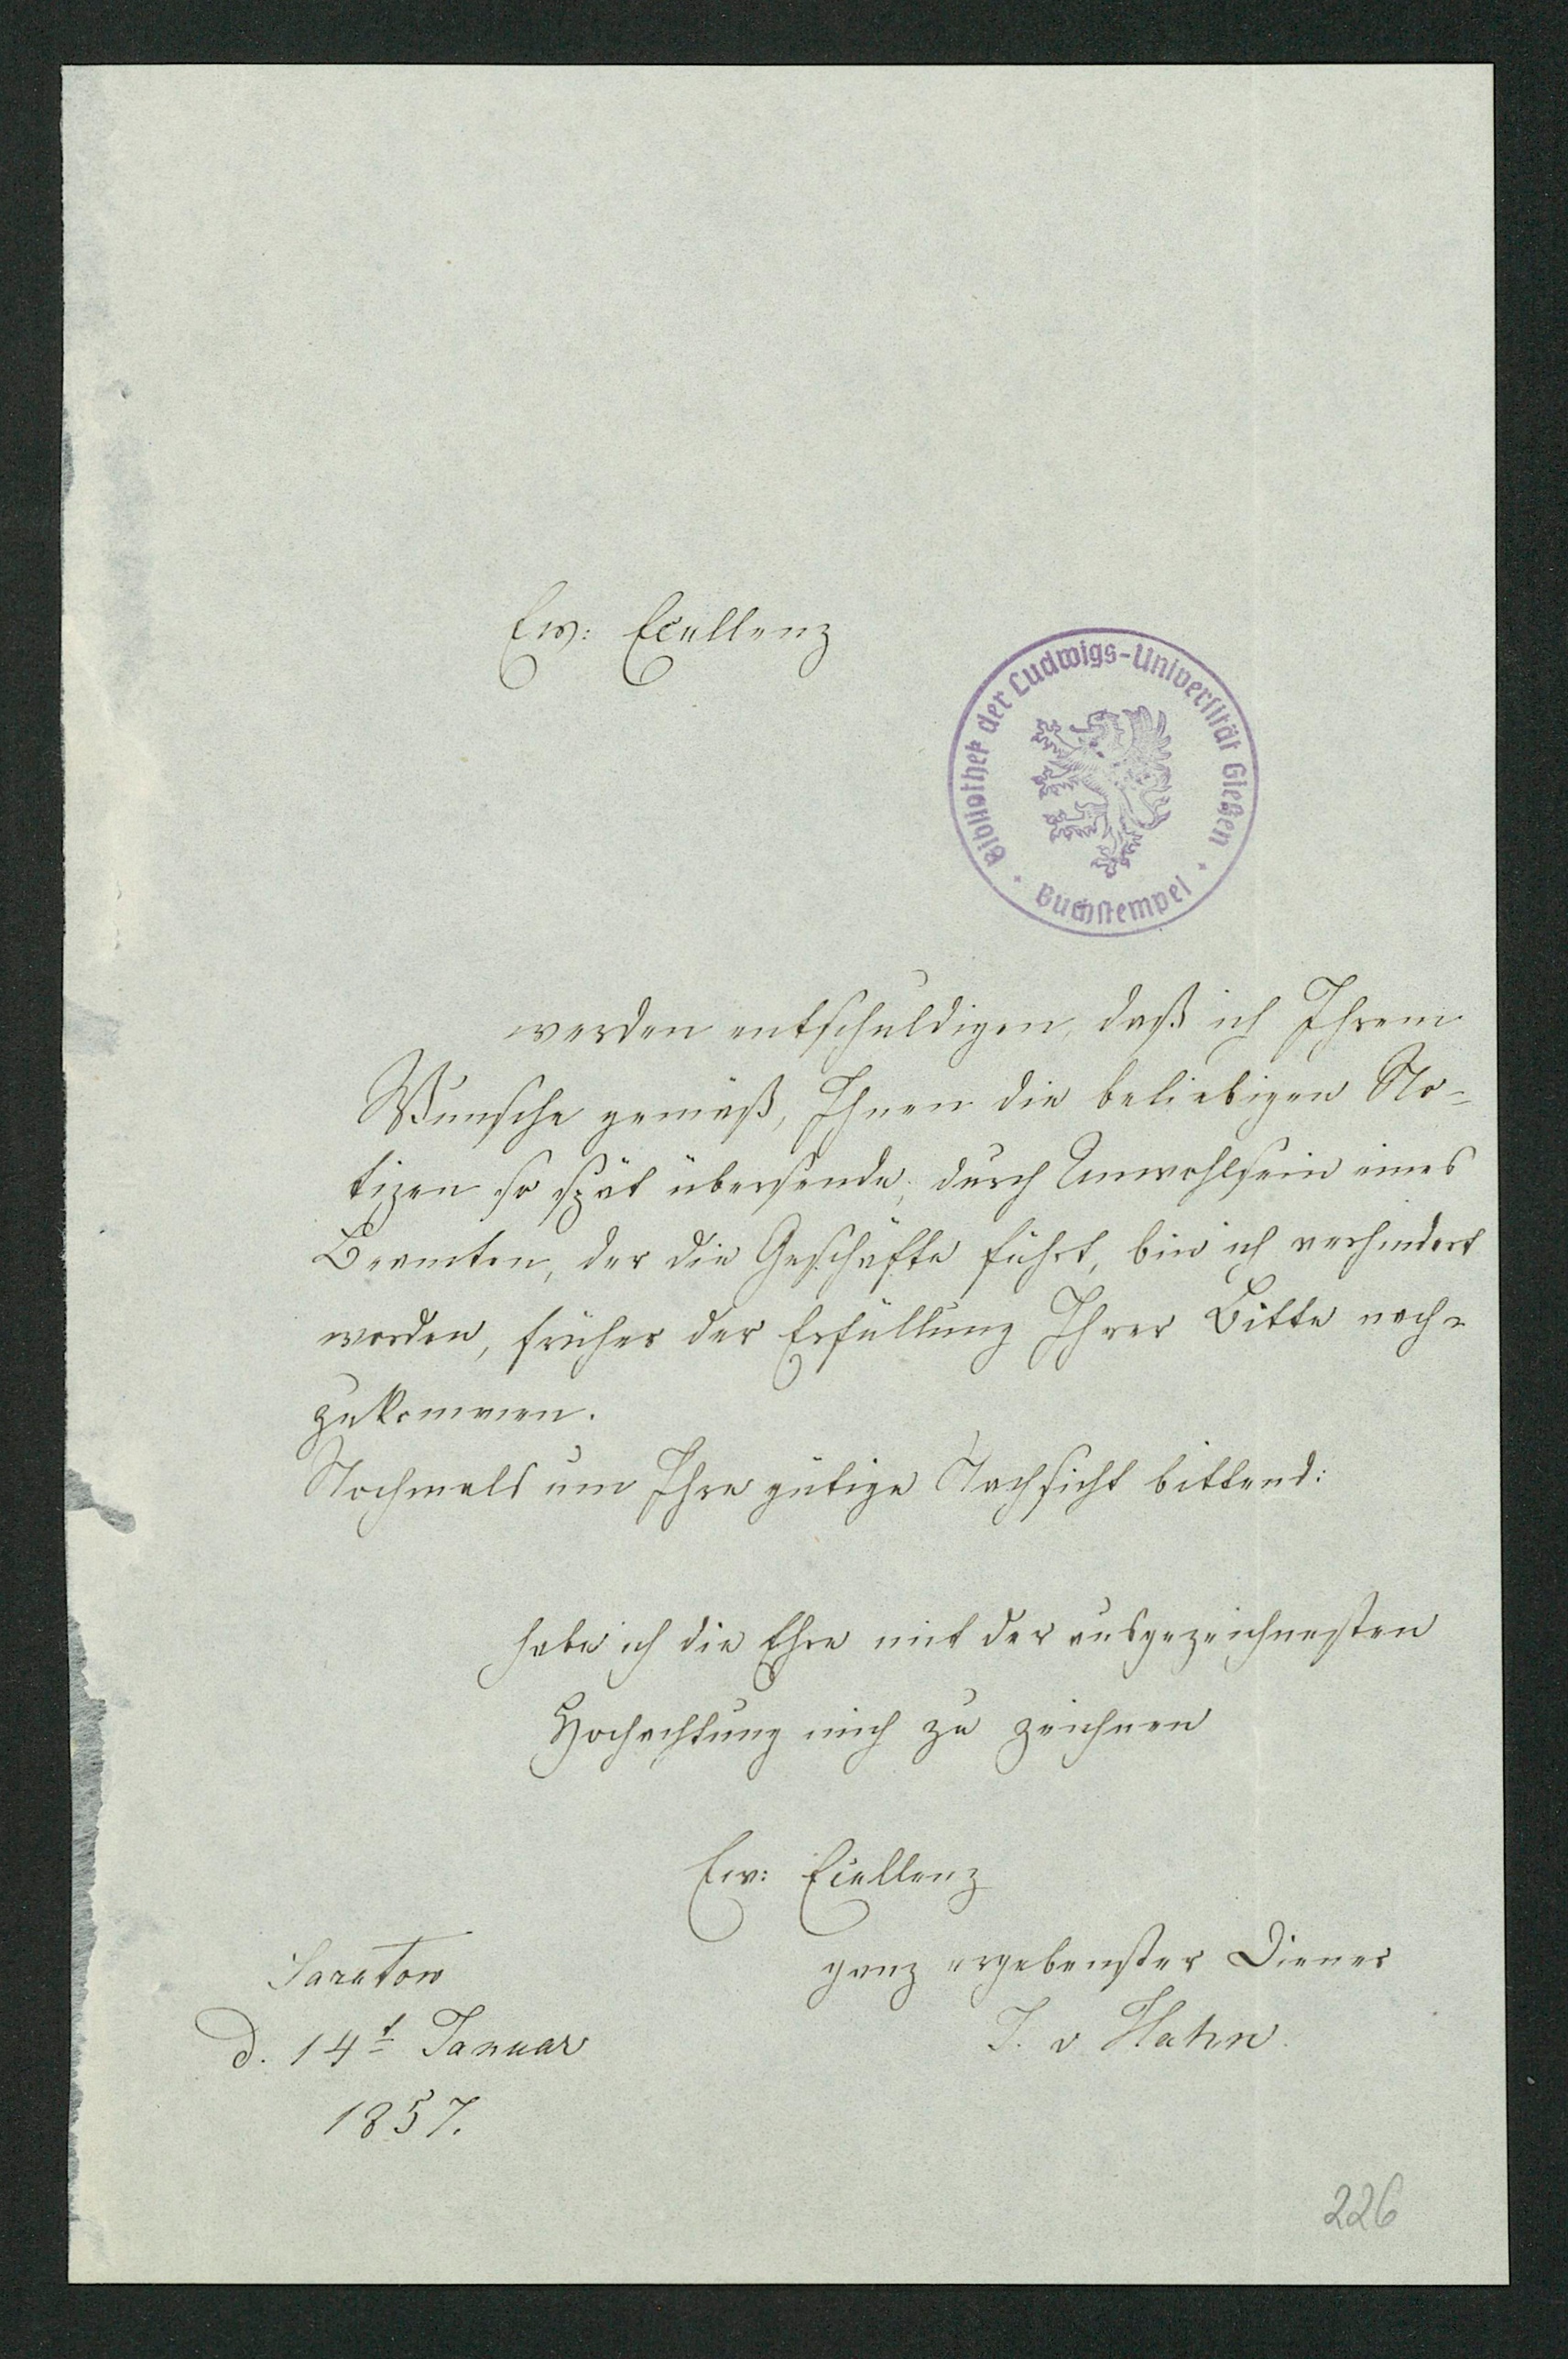 Ew: Excellenz
Bibliothek der Ludwigs-Universität Gießen
Buchstempel
werden entschuldigen, daß ich Ihrem
Wunsche gemäß, Ihnen die beliebigen No-
tizen so spät übersende; durch Unwohlsein eines
Beamten, der die Geschäfte führt, bin ich verhindert
worden, früher der Erfüllung Ihrer Bitte nach-
zukommen.
Nochmals um Ihre gütige Nachsicht bittend:
habe ich die Ehre mit der ausgezeichnesten
Hochachtung mich zu zeichnen
Ew: Excellenz
ganz ergebenster Diener
J. v Hahn.
Saratow
d. 14t Januar
1857.
226